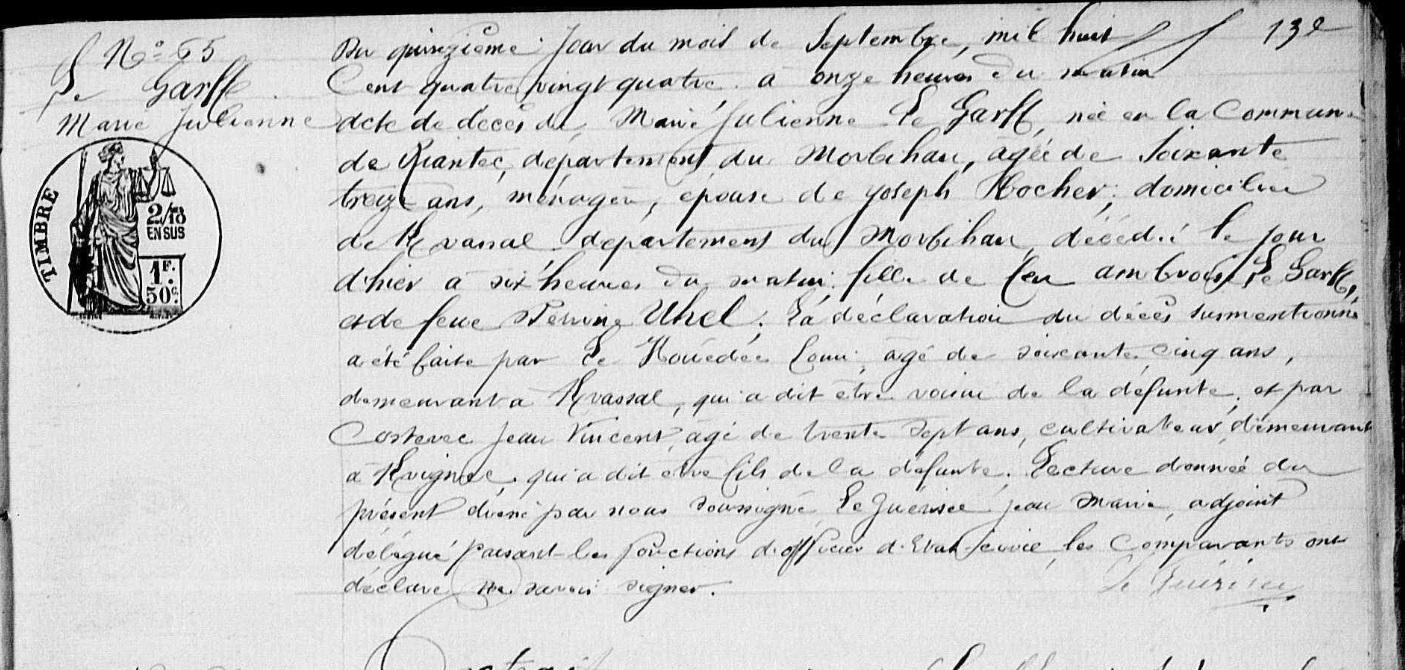 N° 65
Le Garff
Marie Julienne
TIMBRE
2/10
EN SUS
1F.
50c.
13e
Du quinzième Jour du mois de Septembre, mil huit
Cent quatre vingt quatre à onze heures du matin
acte de décès de Marie Julienne Le Garff, née en la Commune
de Riantec, département du Morbihan, âgée de Soixante
treize ans, ménagère, épouse de Joseph Rocher, domiciliée
de département du Morbihan, décédée le jour
d'hier à six heures du matin; fille de feu ambroise Le Garff,
et de feue Perrine Uhel. La déclaration du décès susmentionné
a été faite par Le Rouédec Louis, âgé de soixante cinq ans,
demeurant à Kvassal, qui a dit être voisin de la défunte, et par
Costevec Jean Vincent, âgé de trente sept ans, cultivateur, demeurant
à qui a dit être fils de la défunte. Lecture donnée du
présent par nous soussigné Jean Marie, adjoint
délégué faisant les fonctions d'officier d'Etat civil, les Comparants ont
déclaré ne savoir signer.